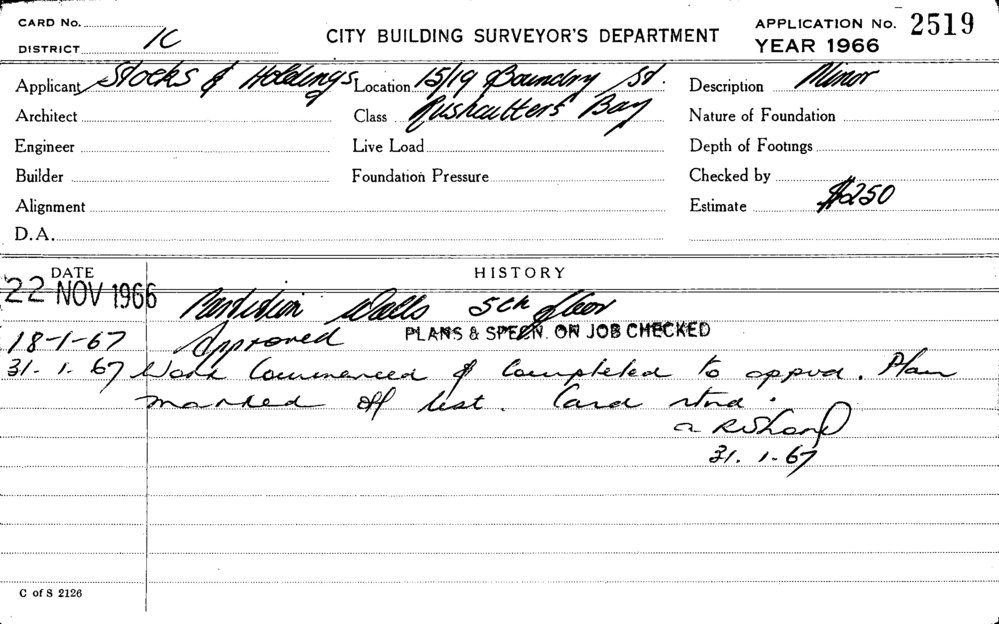 CARD No.
DISTRICT 1C
CITY BUILDING SURVEYOR'S DEPARTMENT
APPLICATION No. 2519
YEAR 1966
Applicant Stocks & Holdings Location 15/19 Boundry St. Description Minor
Architect Class Rushcutters Bay Nature of Foundation
Engineer Live Load Depth of Footings
Builder Foundation Pressure Checked by
Alignment Estimate $250
D.A.
DATE HISTORY
22 NOV 1966 Partition Walls 5th floor
18-1-67 Approved PLANS & SPECN. ON JOB CHECKED
31. 1. 67 Work Commenced & Completed to approval. Plan
marked off list. Card
31. 1-67
C of S 2126